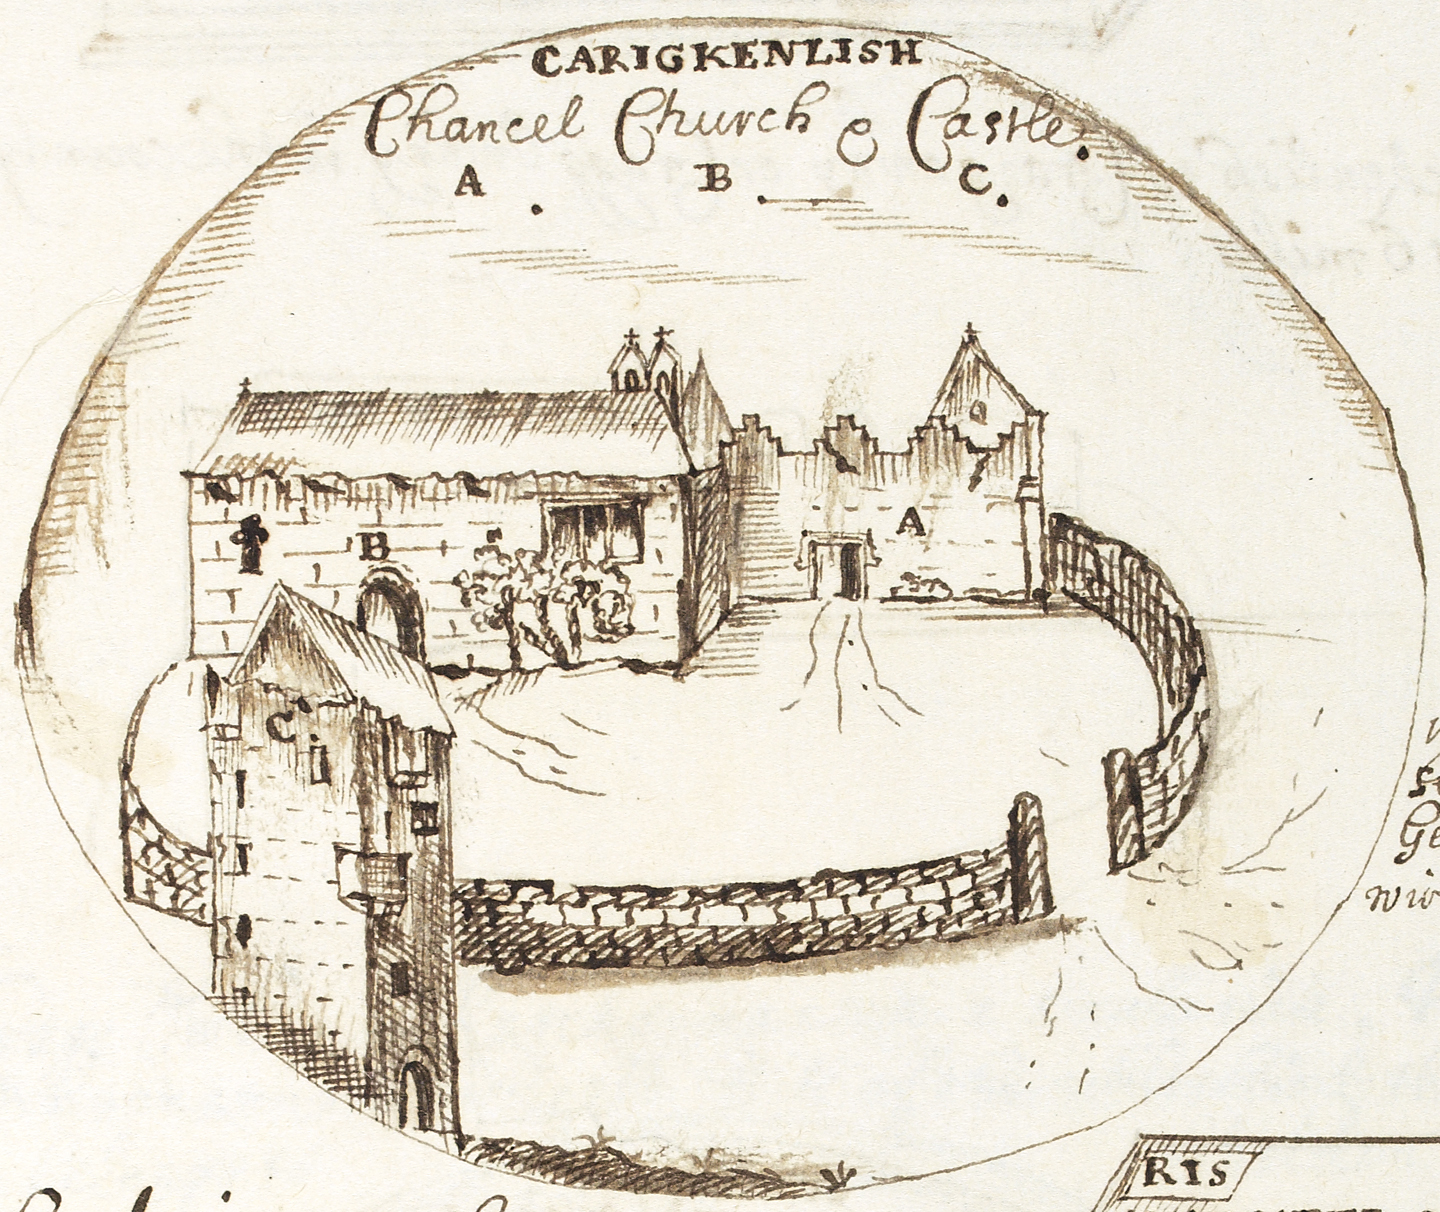 CARIGKENLISH
Chancel Church & Castle.
A . B . C .
B
A
C
RIS